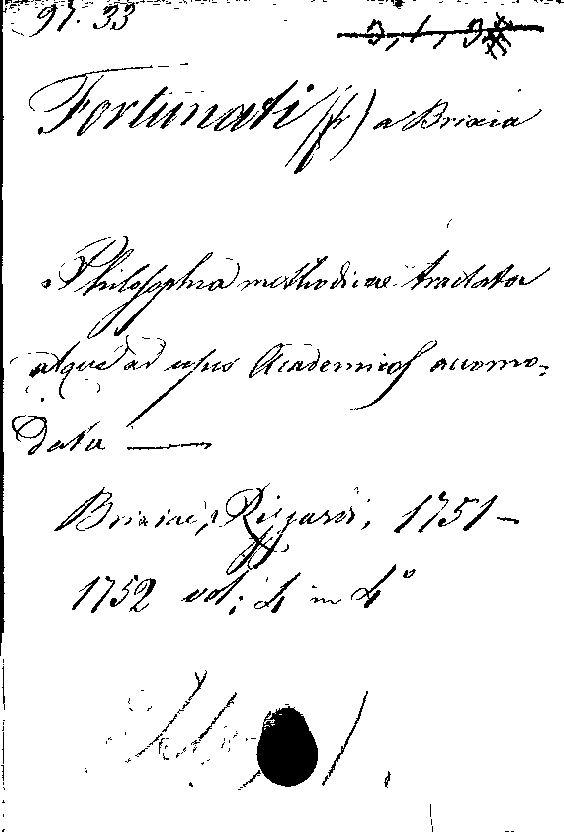 97. 33
3, 1, 3
Fortunati (fr) a Brixia
Philosophia methodicae tractata
atque ad usus Academicos accomo-
data —
Brixiae, Rizzardi, 1751-
1752 vol: 4 in 4°